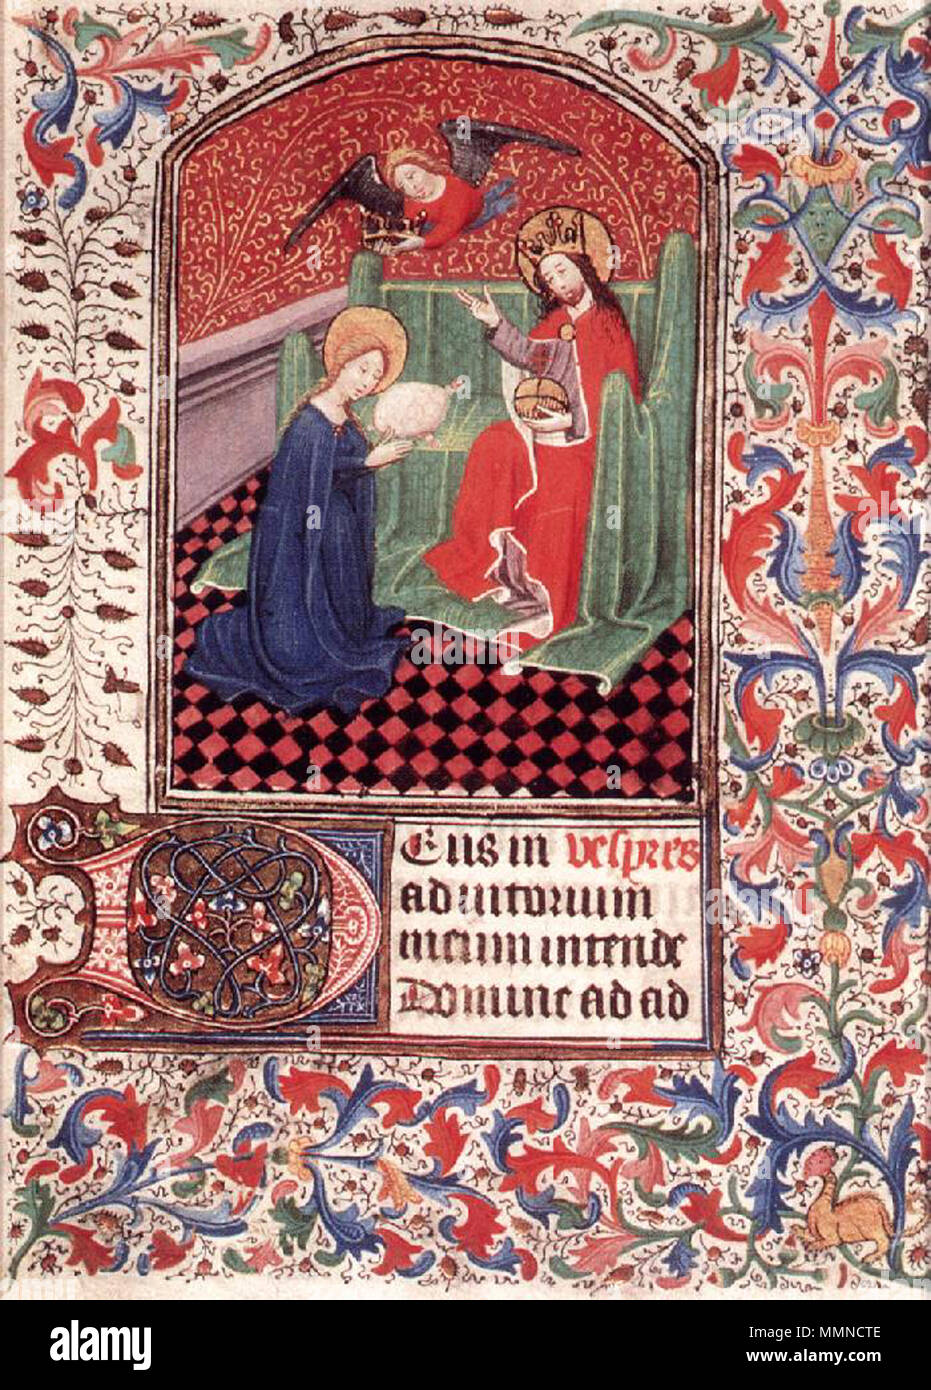 Eus in vespres
adiutorium
meum intende
Domine ad ad
alamy
Image ID: MMNCTE
www.alamy.com